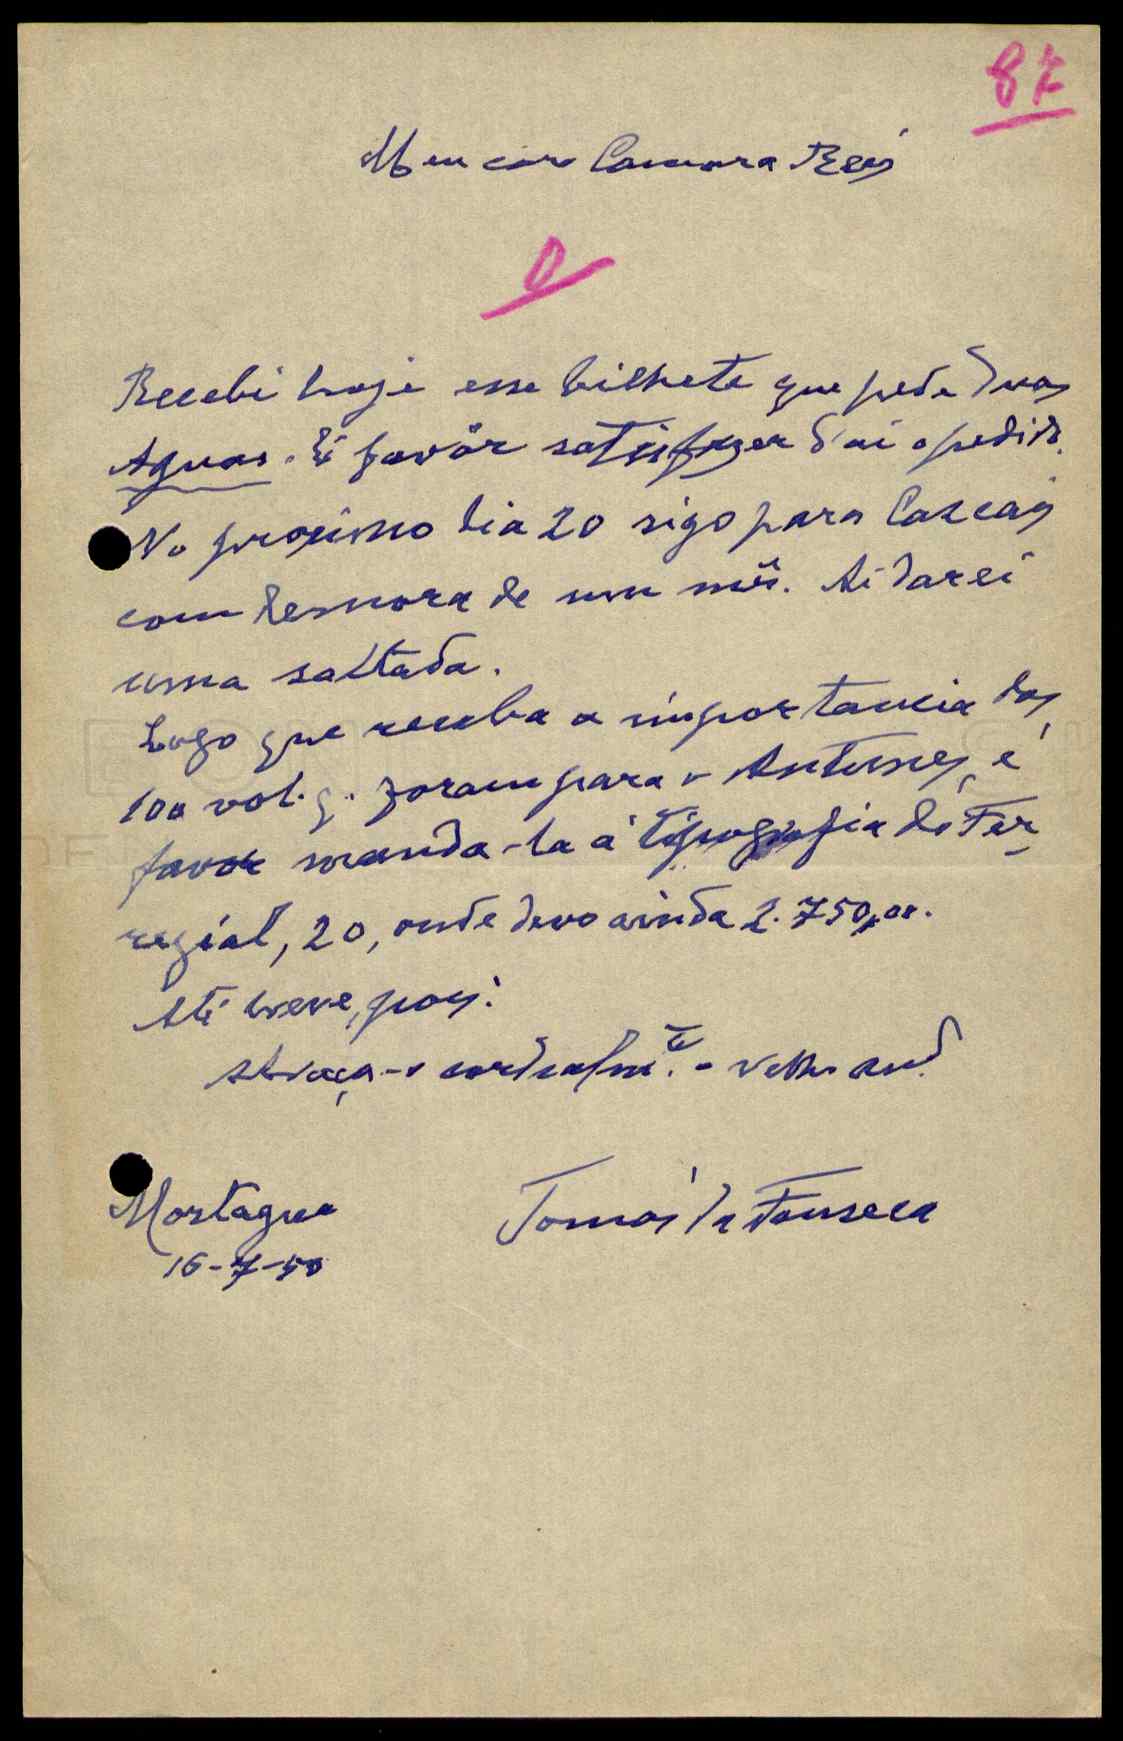 87
Meu caro Camara Reis
Recebi hoje esse bilhete que pede duas
Aguas. É favôr satisfazer d'ai o pedido.
No proximo dia 20 sigo para Cascais
com demora de um mês. Ai darei
uma saltada.
Logo que receba a importancia dos
100 vol. q. foram para o Antunes, é
favor manda-la á tipografia do Fer
regial, 20, onde devo ainda 2.750,00.
Até breve, pois.
Abraça-o cordealm.te o velho am.
Mortagua
Tomás da Fonseca
16-7-50